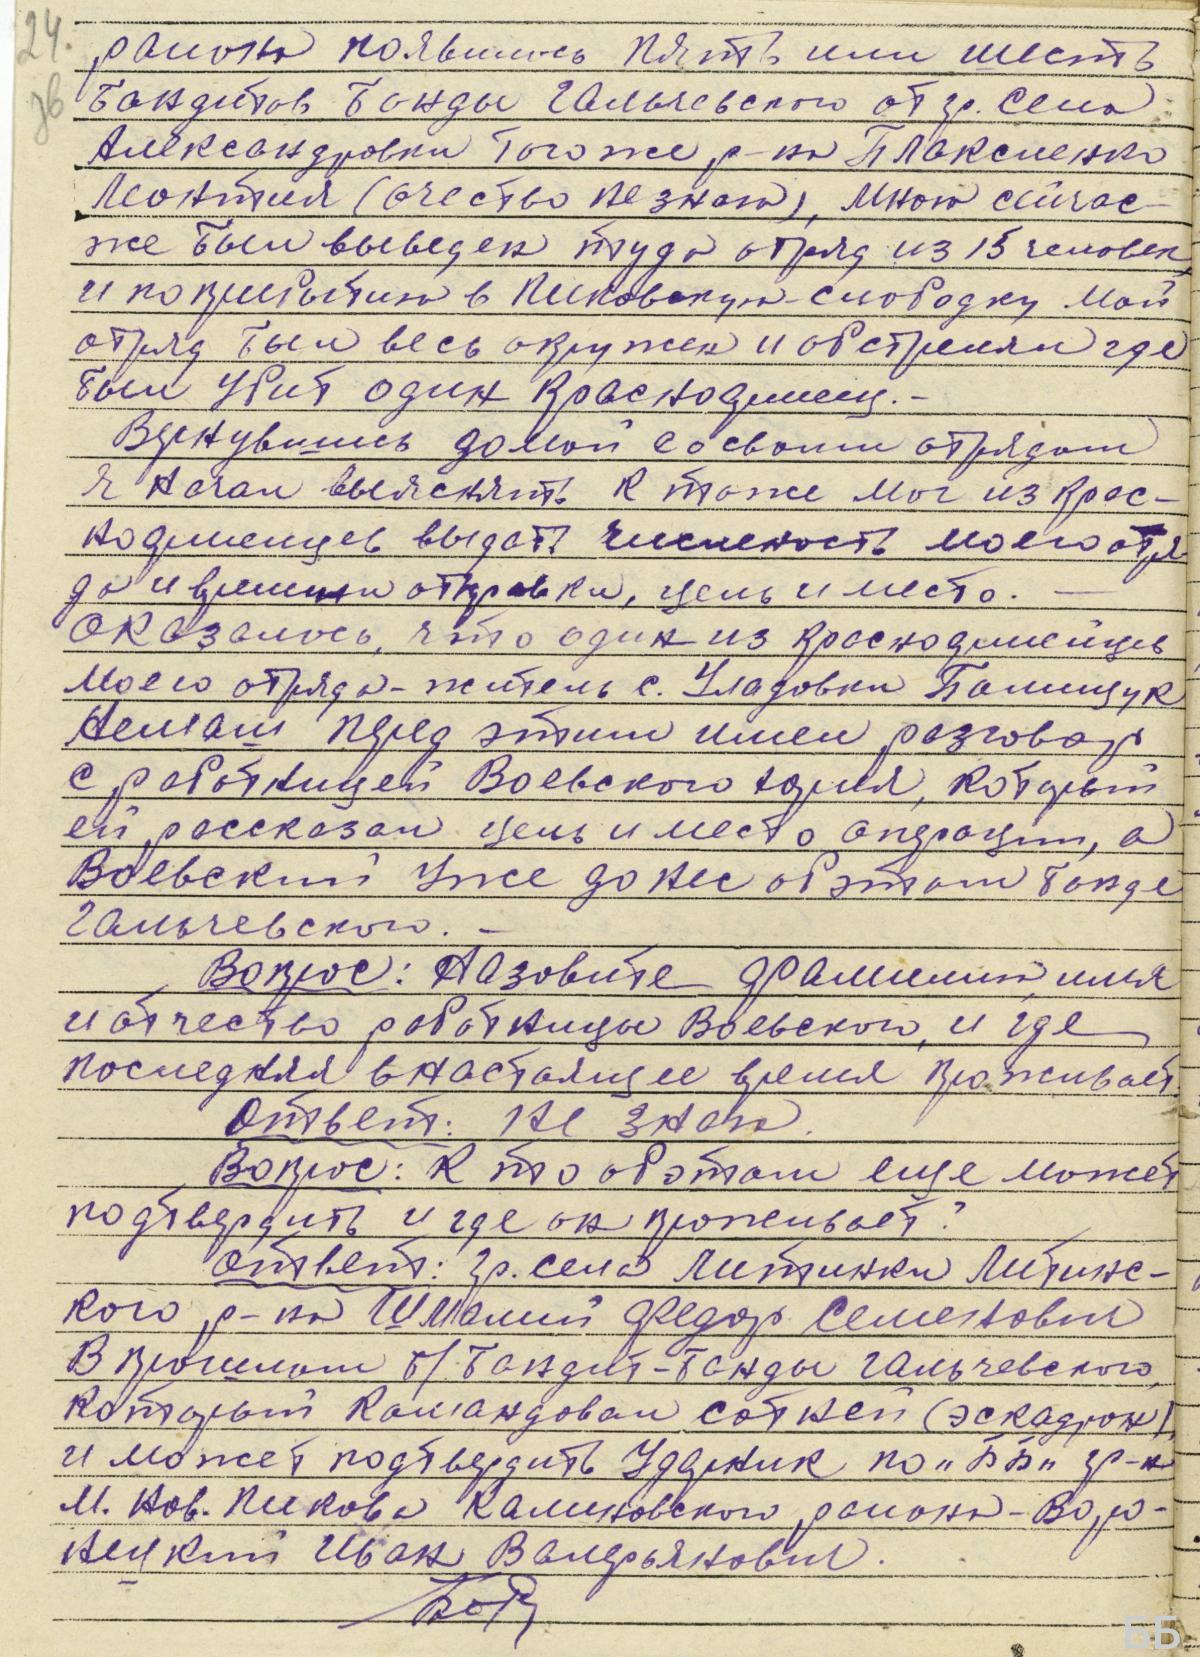 24.
зв
района появилось пять или шесть
бандитов банды Гальчевского от гр. села
Александровки того же р-на Плаксиенко
Леонтия (очество не знаю), мною сейчас-
же был выведен туда отряд из 15 человек
и по прибытию в Пиковскую-слободку мой
отряд был весь окружен и обстрелян где
был убит один красноармеец. -
Вернувшись домой со своим отрядом
я начал выяснять кто же мог из крас-
ноармейцев выдать численность моего отря
да и времени отправки, цель и место. —
Оказалось, что один из красноармейцев
моего отряда - житель с. Уладовки Полищук
перед этим имел разговор
с работницей Воевского Юрия, который
ей рассказал цель и место операции, а
Воевский уже донес об этом банде
Гальчевского. -
Вопрос: Назовите фамилию, имя
и отчество работницы Воевского, и где
последняя в настоящее время проживает.
Ответ: Не знаю.
Вопрос: Кто об этом еще может
подтвердить и где он проживает?
Ответ: гр. села Литинки Литинс-
кого р-на Шмалий Федор Семенович
в прошлом б/бандит-банды Гальчевского,
который командовал сотней (эскадрон),
и может подтвердить Ударник по „ББ„ гр-н
м. Нов. Пикова Калиновского района - Воро-
нецкий Иван Валерьянович.
ББ